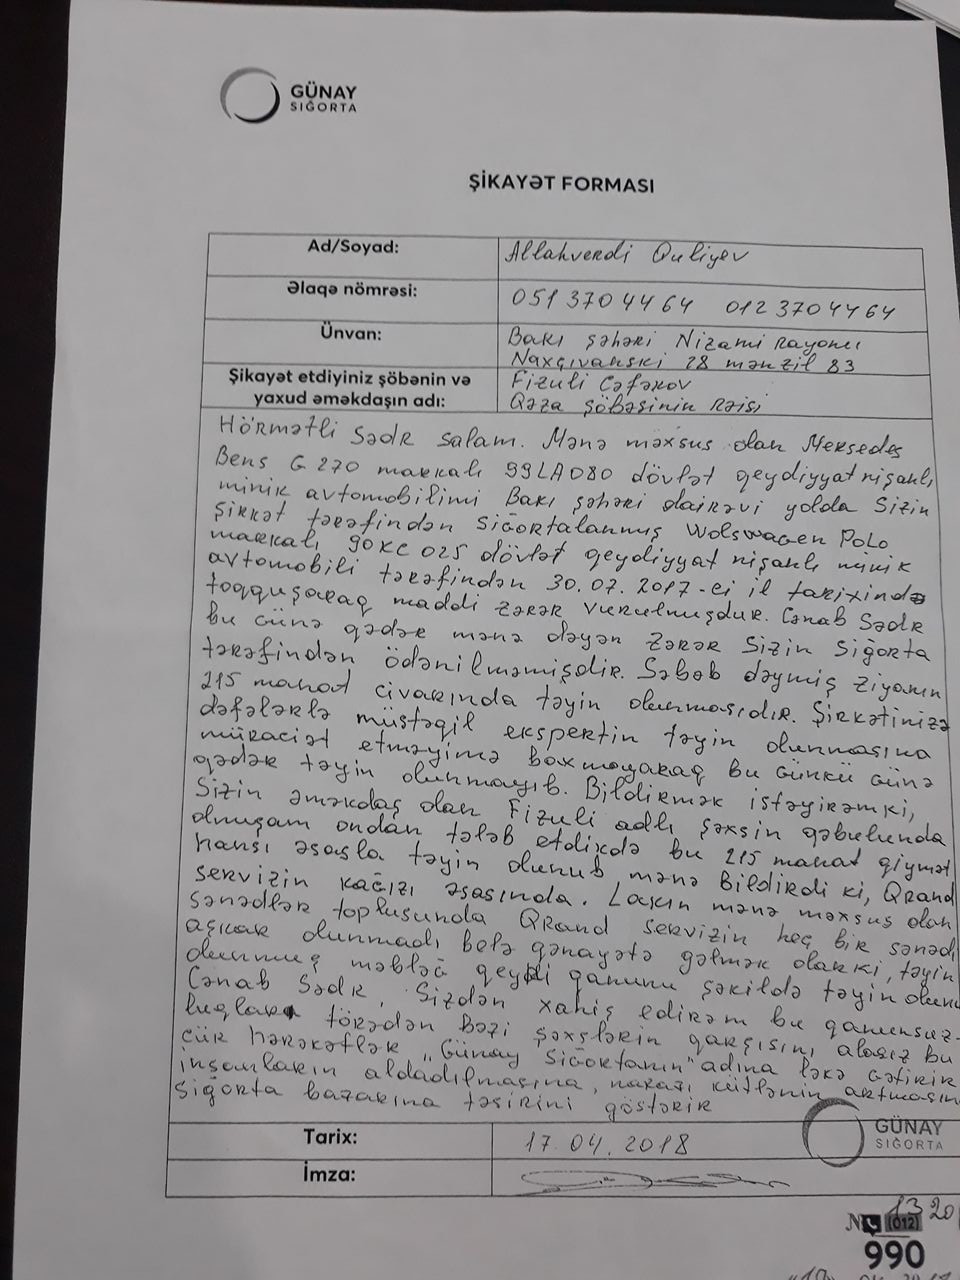 GÜNAY
SIĞORTA
ŞİKAYƏT FORMASI
Ad/Soyad:
Allahverdi Quliyev
Əlaqə nömrəsi:
051 370 44 64 012 370 44 64
Ünvan:
Bakı şəhəri Nizami Rayonu
Naxçıvanski 28 mənzil 83
Şikayət etdiyiniz şöbənin və
yaxud əməkdaşın adı:
Fizuli Cəfərov
Qəza şöbəsinin Rəisi
Hörmətli Sədr salam. Mənə məxsus olan Mersedes
Bens G 270 markalı 99LA080 dövlət qeydiyyat nişanlı
minik avtomobilimi Bakı şəhəri dairəvi yolda Sizin
Şirkət tərəfindən sığortalanmış Wolswagen Polo
markalı 90KC025 dövlət qeydiyyat nişanlı minik
avtomobili tərəfindən 30.07.2017-ci il tarixində
toqquşaraq maddi zərər vurulmuşdur. Cənab Sədr
bu günə qədər mənə dəyən zərər Sizin Sığorta
tərəfindən ödənilməmişdir. Səbəb dəymiş ziyanın
215 manat civarında təyin olunmasıdır. Şirkətinizə
dəfələrlə müstəqil ekspertin təyin olunmasına
müraciət etməyimə baxmayaraq bu günkü günə
qədər təyin olunmayıb. Bildirmək istəyirəmki,
Sizin əməkdaş olan Fizuli adlı şəxsin qəbulunda
olmuşam ondan tələb etdikdə bu 215 manat qiymət
hansı əsasla təyin olunub mənə Bildirdi ki, QRand
servizin kağızı əsasında. Lakin mənə məxsus olan
sənədlər toplusunda QRand servizin heç bir sənədi
aşkar olunmadı belə qənayətə gəlmək olarki, təyin
olunmuş məbləğ qeydi qanunu şəkildə təyin olunu
Cənab Sədr, Sizdən xahiş edirəm bu qanunsuz-
luqları törədən bəzi şəxslərin qarşısını alasız bu
cür hərəkətlər „Günay Sığortanın" adına ləkə gətirir
insanların aldadılmasına, narazı kütlənin artmasın
Sığorta bazarına təsirini göstərir
Tarix:
17.04.2018
GÜNAY
SIĞORTA
İmza:
№ 1320
(012)
990